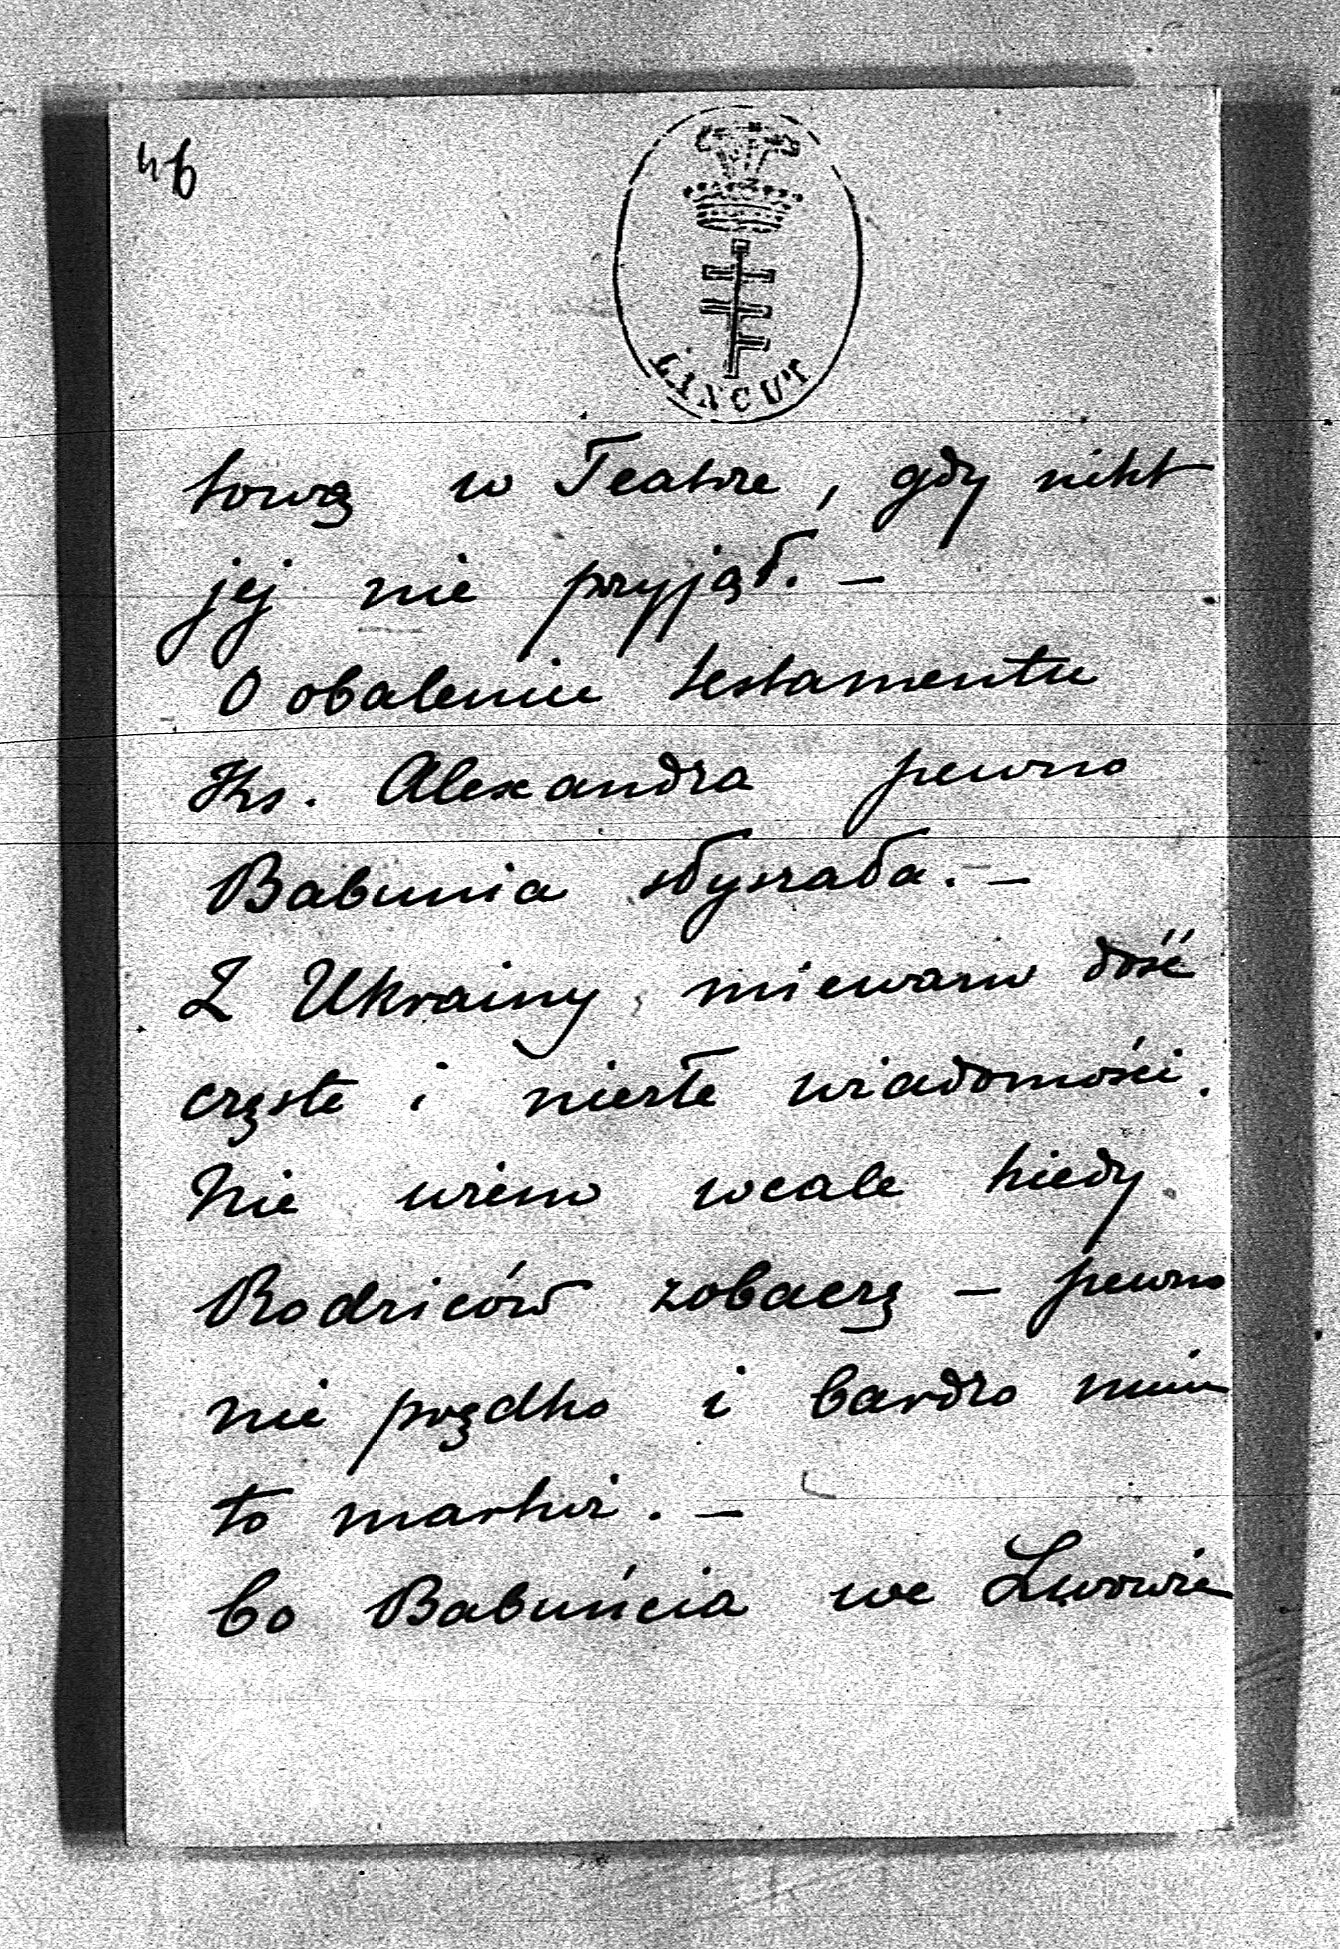 46
ŁAŃCUT
tową w Teatrze, gdy nikt
jej nie przyjął. —
O obaleniu testamentu
Ks. Alexandra pewno
Babunia słyszała. —
Z Ukrainy miewam dość
częste i niezłe wiadomości.
Nie wiem wcale kiedy
Rodziców zobaczę — pewno
nie prędko i bardzo mnie
to martwi. —
Co Babuńcia we Lwowie